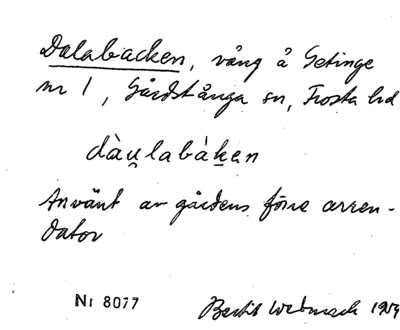 Dalabacken, vång å Getinge
nr 1, Gårdstånga sn, Frosta hd
dàu̯labàḵen
Använt av gårdens förre arren-
dator
Nr 8077
Bertil 1959